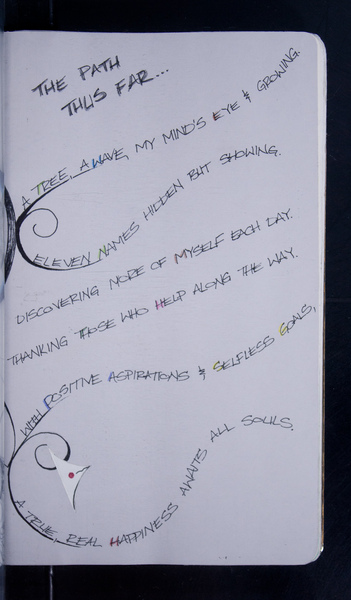 THE PATH
THUS FAR...
A TREE, A WAVE, MY MIND'S EYE & GROWING.
ELEVEN NAMES HIDDEN BUT SHOWING.
DISCOVERING MORE OF MYSELF EACH DAY.
THANKING THOSE WHO HELP ALONG THE WAY.
WITH POSITIVE ASPIRATIONS & SELFLESS GOALS,
A TRUE, REAL HAPPINESS AWAITS ALL SOULS.